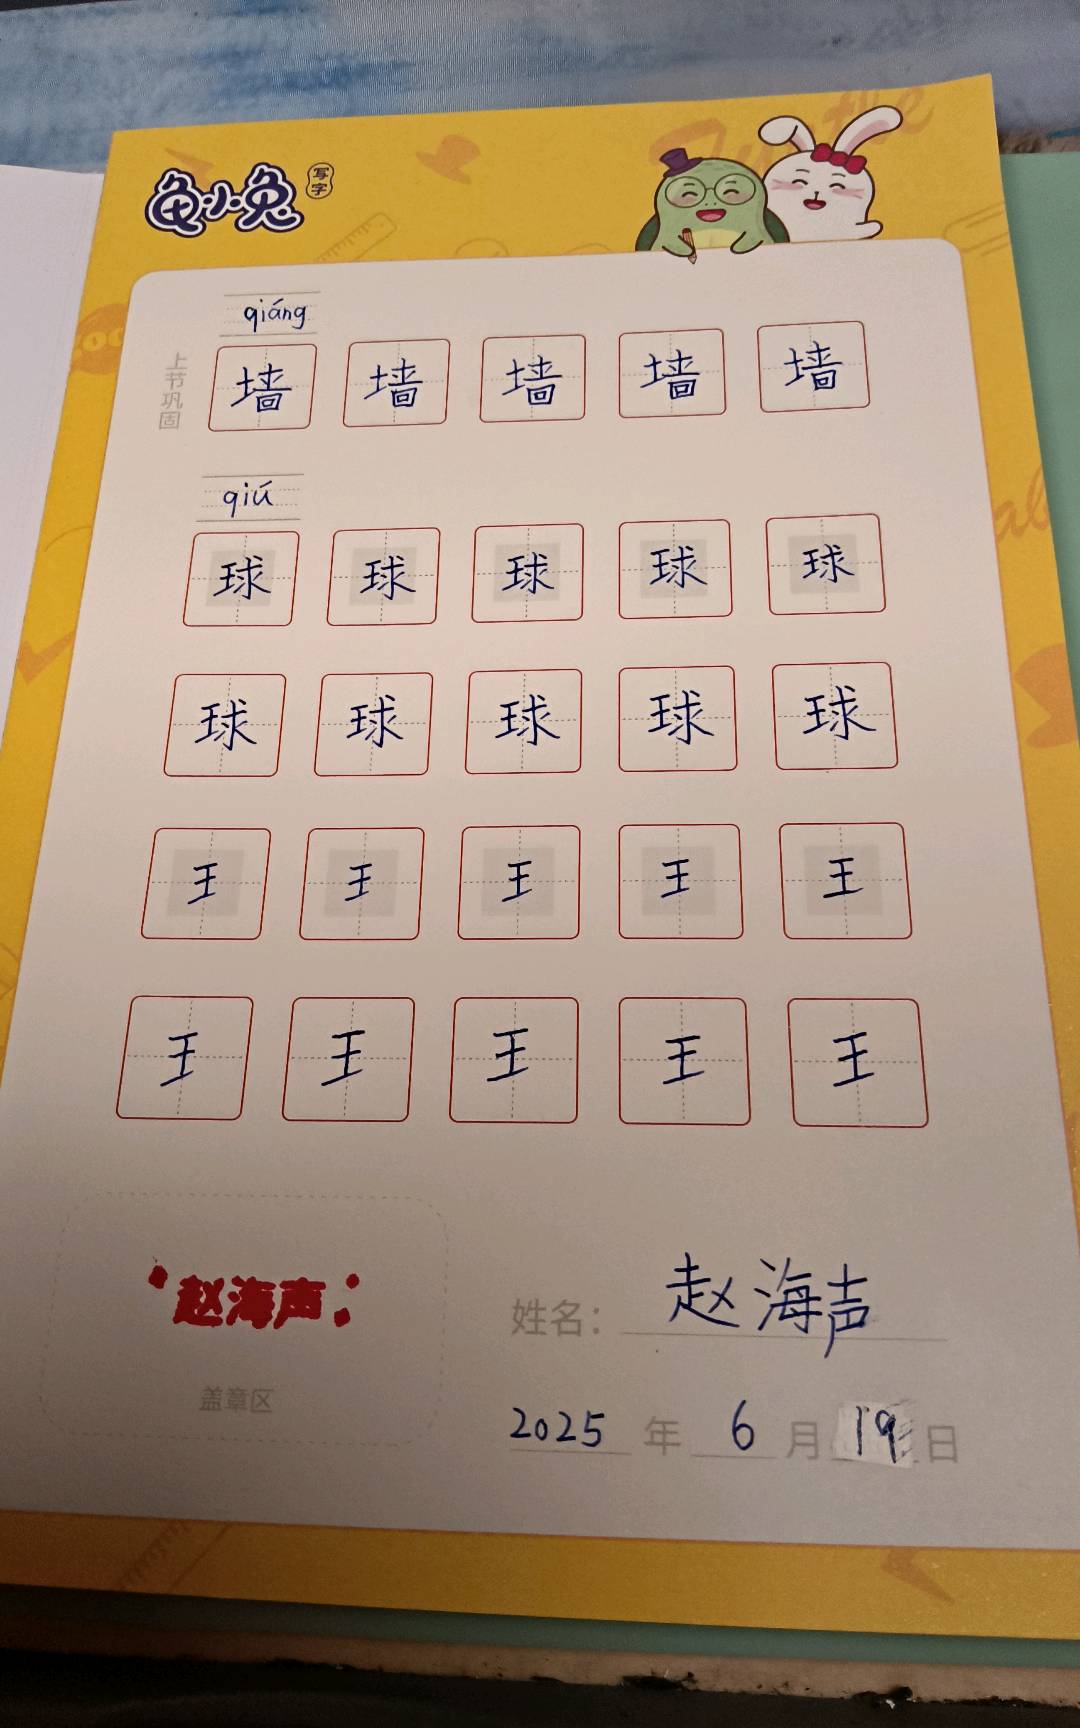 龟小兔 写字
qiáng
上节巩固
墙 墙 墙 墙 墙
qiú
球 球 球 球 球
球 球 球 球 球
王 王 王 王 王
王 王 王 王 王
赵海声
盖章区
姓名: 赵海声
2025 年 6 月 19 日